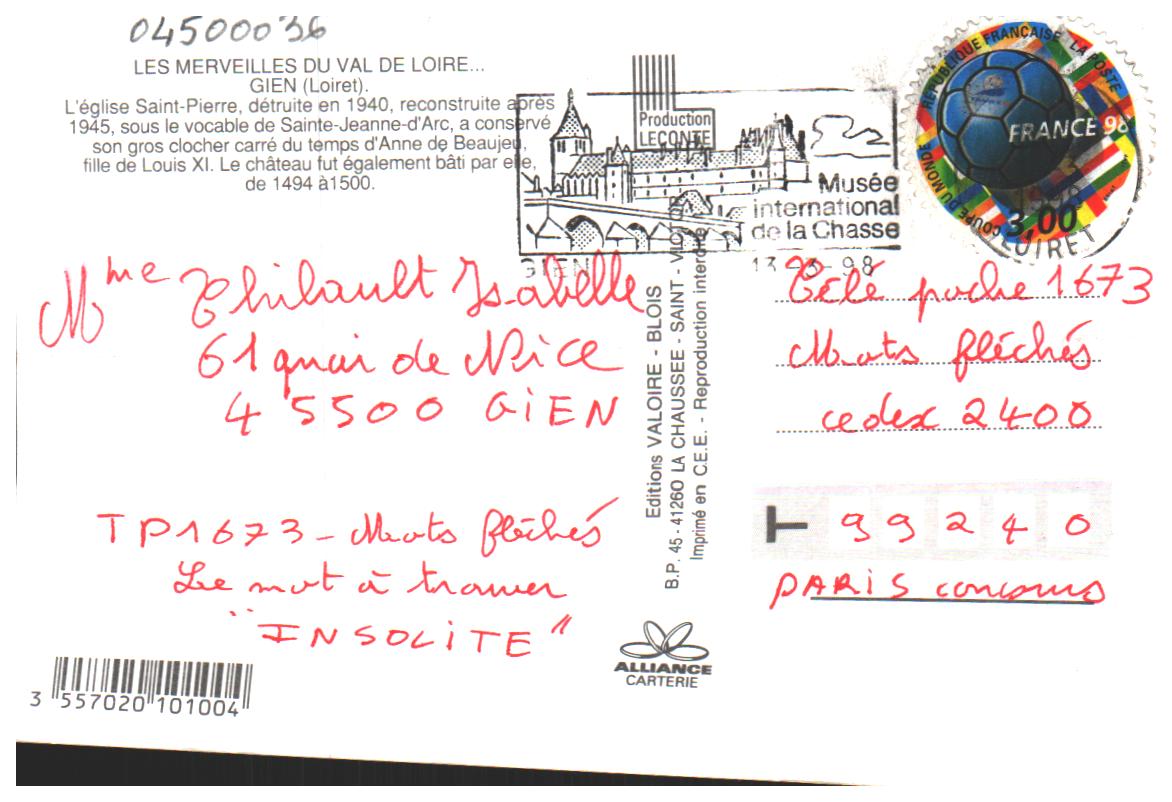 04500036
LES MERVEILLES DU VAL DE LOIRE...
GIEN (Loiret).
L'église Saint-Pierre, détruite en 1940, reconstruite après
1945, sous le vocable de Sainte-Jeanne-d'Arc, a conservé
son gros clocher carré du temps d'Anne de Beaujeu,
fille de Louis XI. Le château fut également bâti par elle,
de 1494 à1500.
Production
LECONTE
Musée
international
de la Chasse
GIEN
13-3-98
REPUBLIQUE FRANÇAISE LA POSTE
FRANCE 98
COUPE DU MONDE
3,00
LOIRET
Mme Thibault Isabelle
61 quai de Nice
45500 GIEN
TP1673 - Mots fléchés
Le mot à trouver
"INSOLITE"
Editions VALOIRE - BLOIS
B.P. 45 - 41260 LA CHAUSSEE - SAINT - VICTOR
Imprimé en C.E.E. - Reproduction interdite
Télé poche 1673
Mots fléchés
cedex 2400
99240
PARIS concours
ALLIANCE
CARTERIE
3 557020 101004